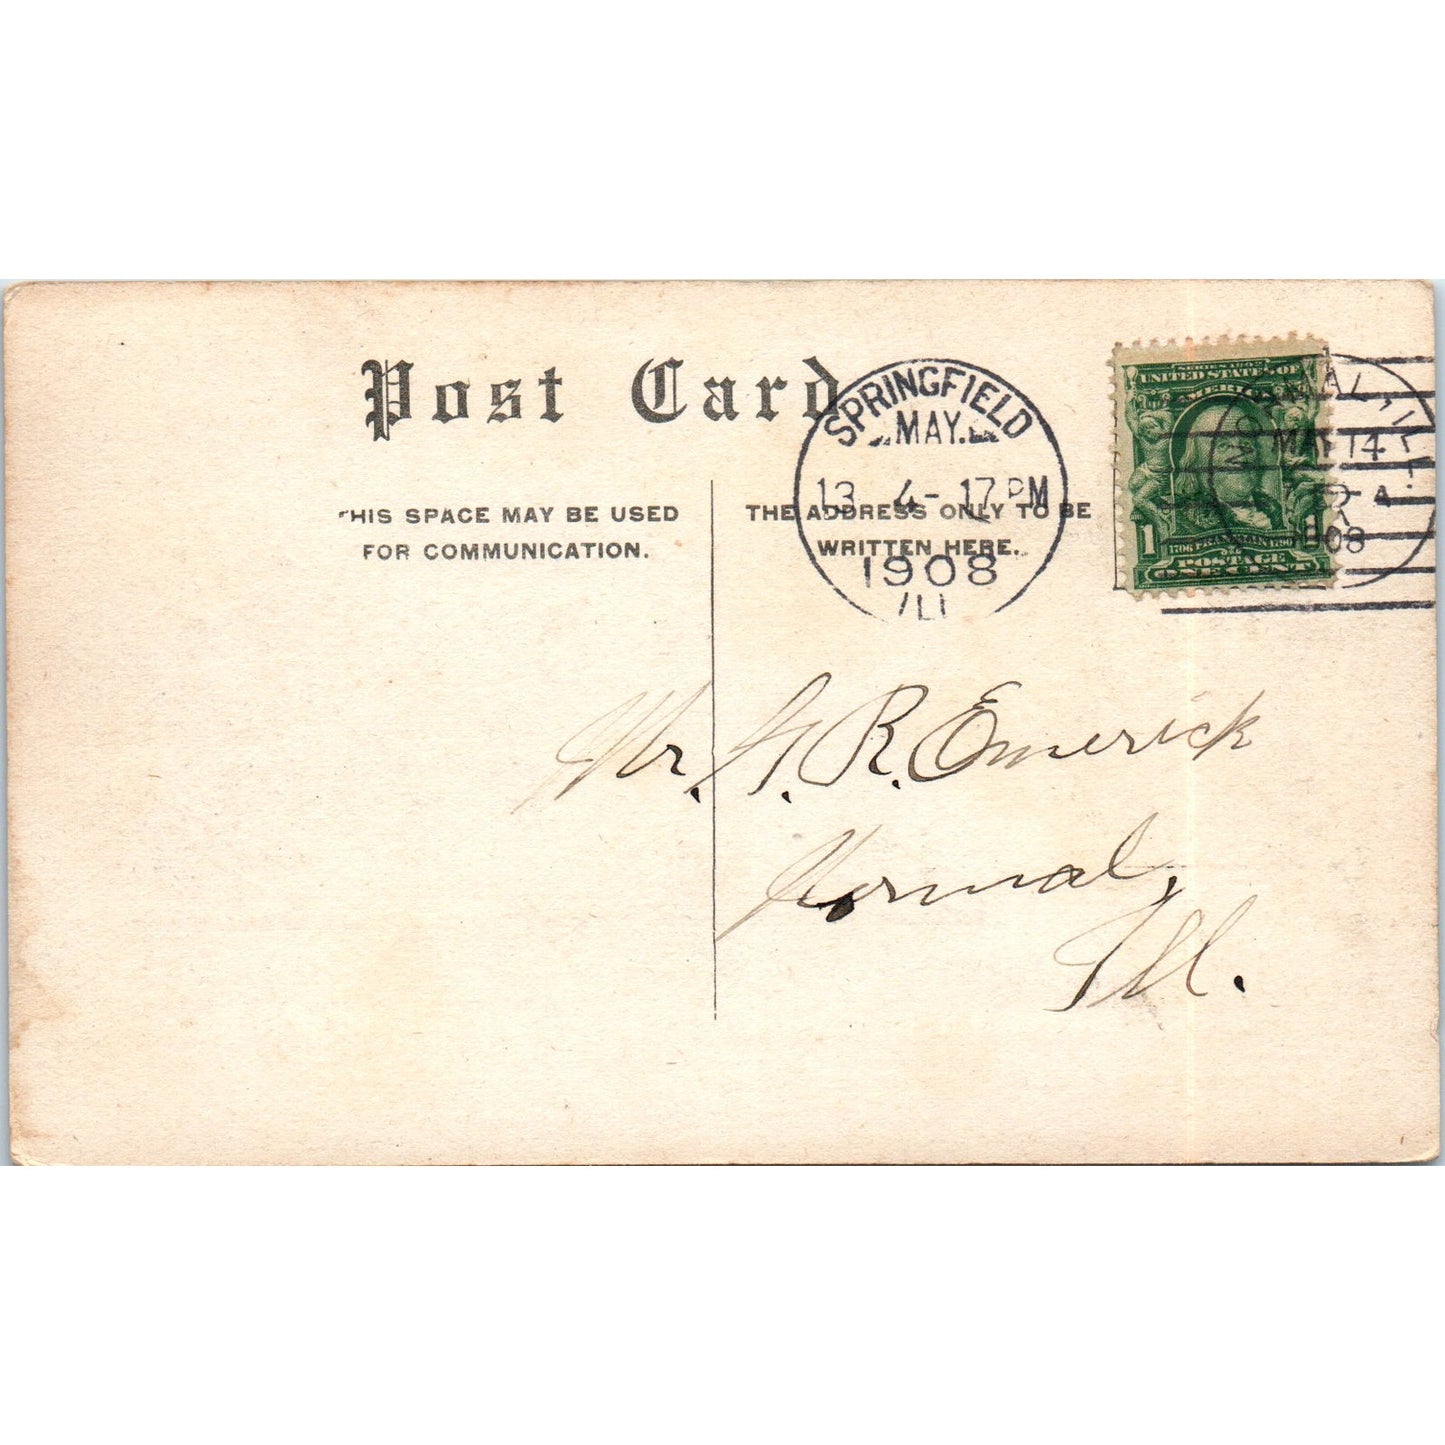 Post Card
THIS SPACE MAY BE USED
FOR COMMUNICATION.
THE ADDRESS ONLY TO BE
WRITTEN HERE.
SPRINGFIELD
MAY.
13 4-17 PM
1908
ILL
UNITED STATES OF
AMERICA
1
POSTAGE
ONE CENT
NORMAL, ILL.
MAY 14
1908
Mr. G. R. Emerick
Normal,
Ill.